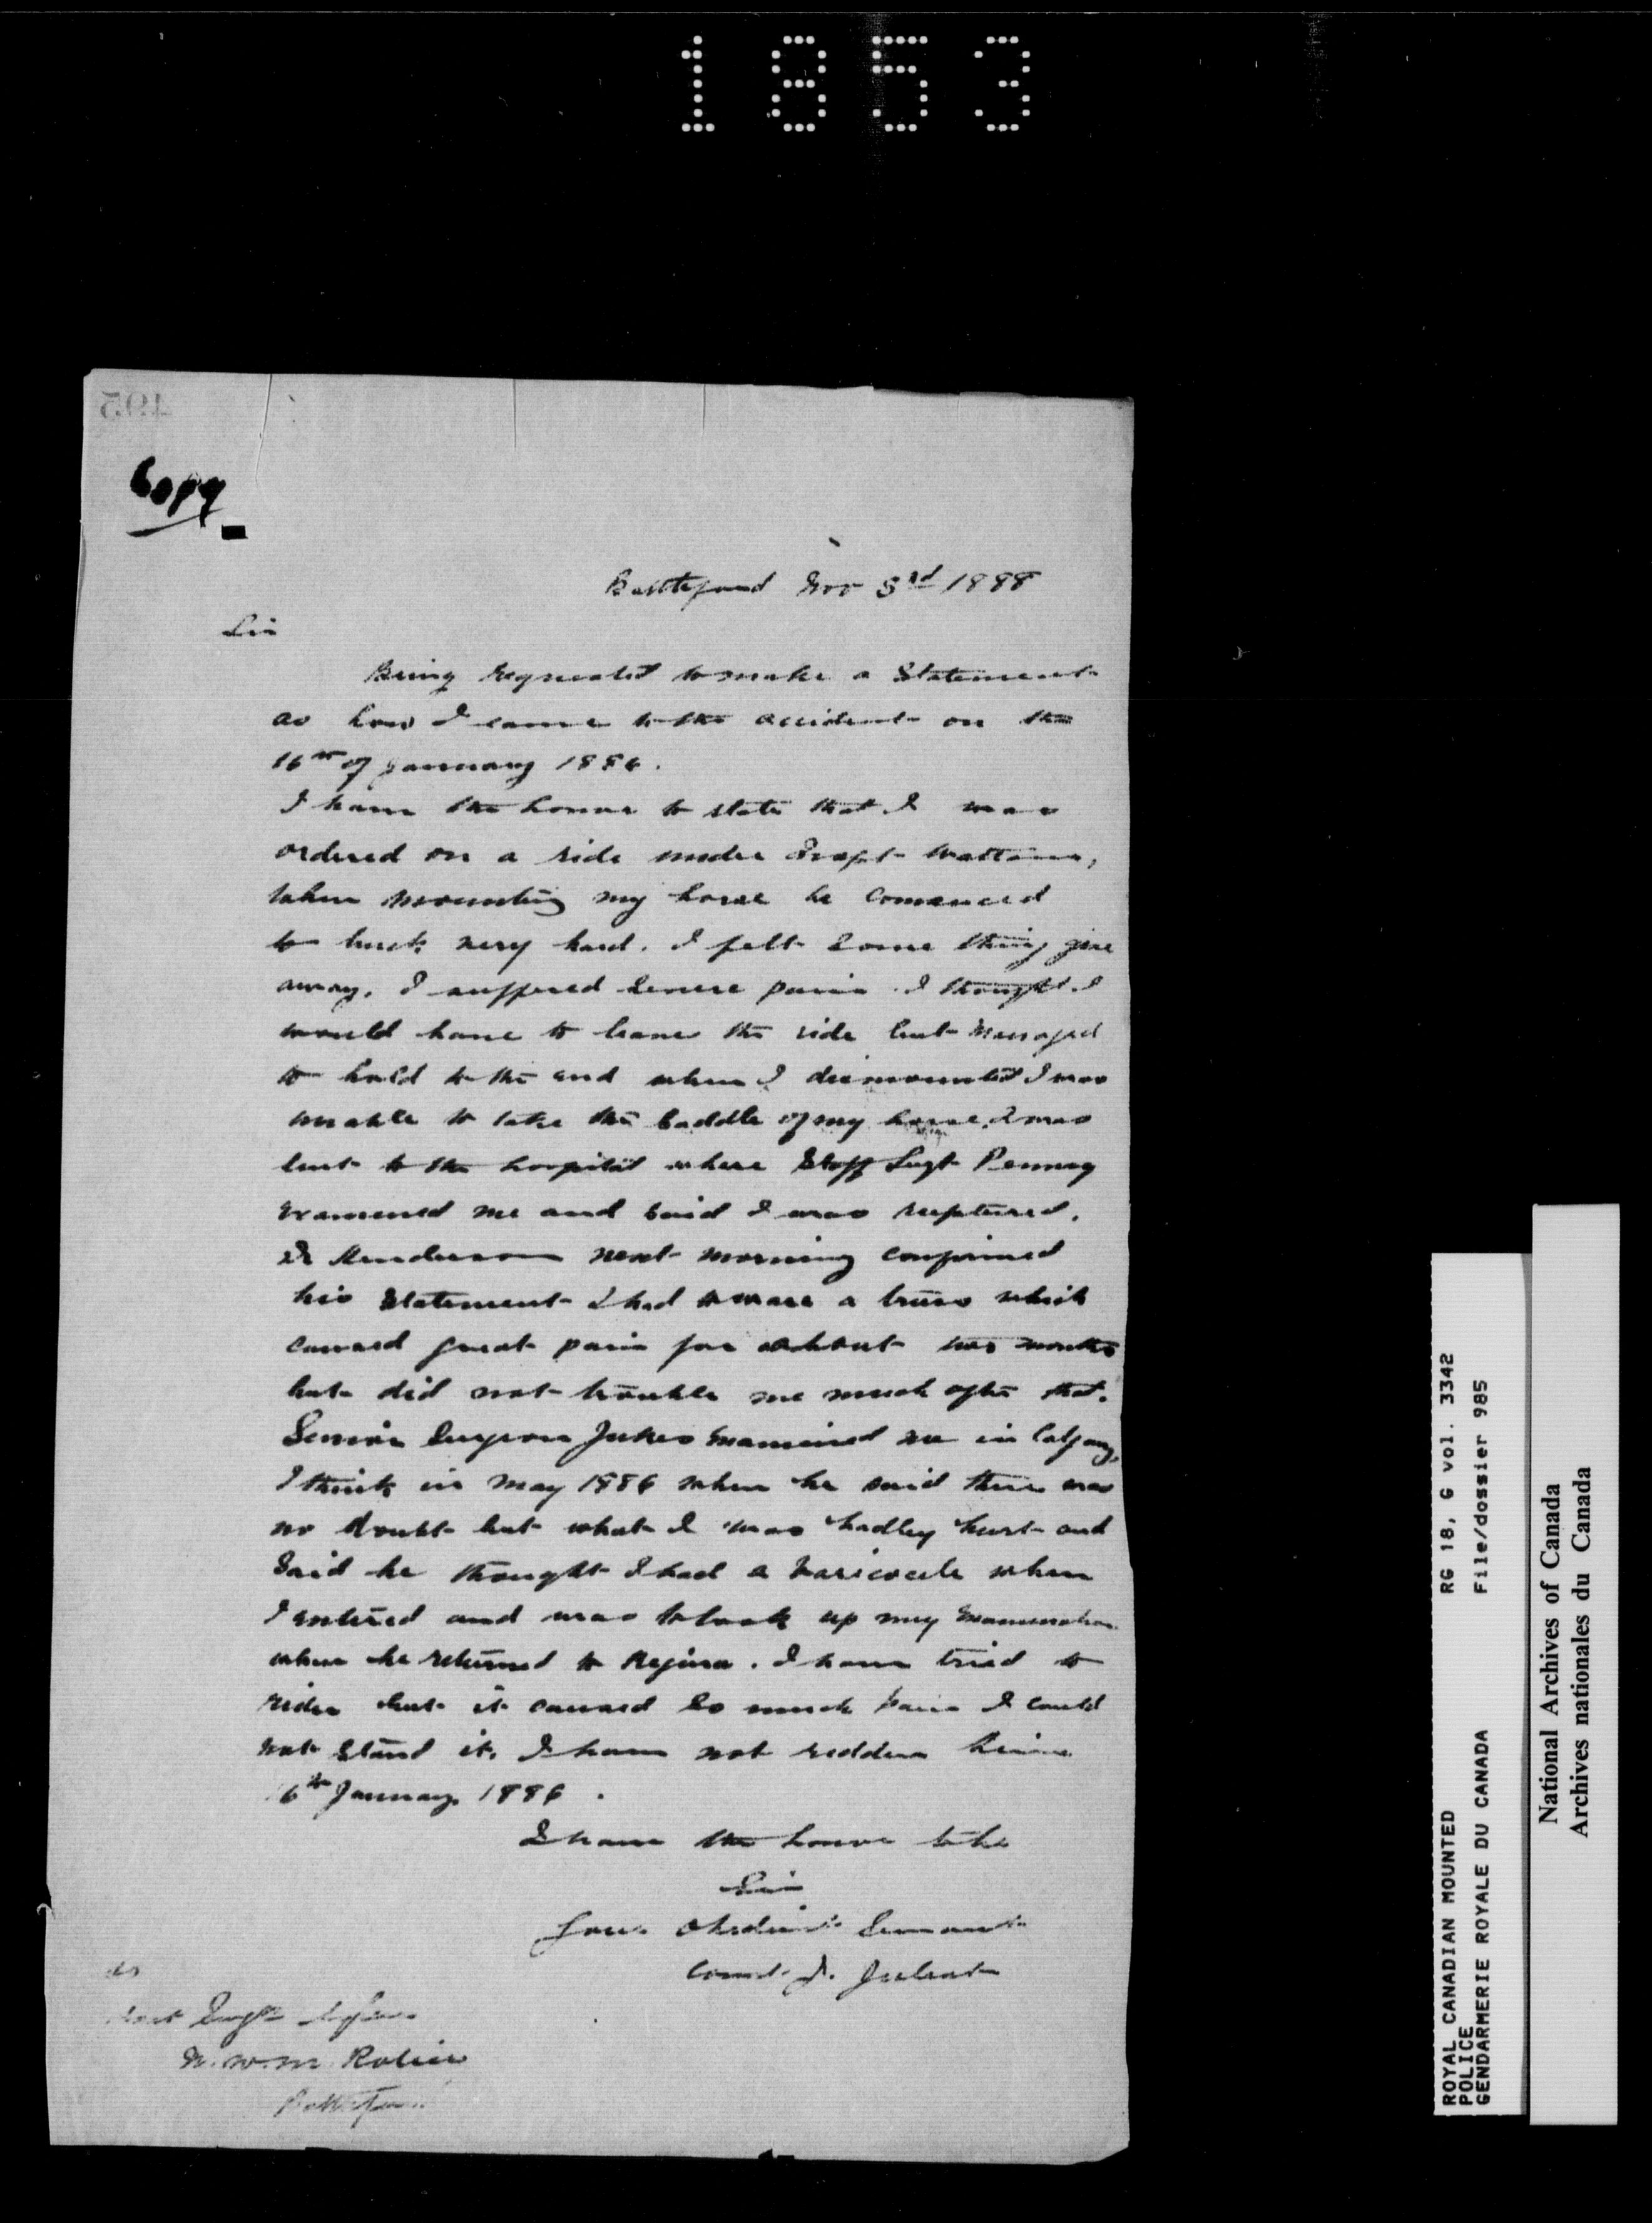 1853
495
Copy
Battleford Nov 3rd 1888
Sir
Being requested to make a Statement
as how I came to the accident on the
16th of January 1886.
I have the honor to state that I was
ordered on a ride under Inspt Wattam,
when mounting my horse he comenced
to buck very hard. I felt some thing give
away. I suffered severe pain. I thought I
would have to leave the ride but managed
to hold to the end when I dismounted I was
unable to take the saddle of my horse. I was
sent to the hospital where Staff Sergt Penney
examened me and said I was ruptured.
Dr Henderson next morning confirmed
his statement I had to ware a truss which
caused great pain for about two months
but did not trouble me much after that.
Senior Surgeon Jukes examined me in Calgary,
I think in May 1886 when he said there was
no doubt but what I was badley hurt and
said he thought I had a varicocele when
I entered and was to look up my examination
when he returned to Regina. I have tried to
ride but it caused so much pain I could
not stand it. I have not ridden since
16th January 1886.
I have the honor to be
Sir
Your obedient Servant
Const J.
Asst Surgn
N.W.M. Police
Battleford
ROYAL CANADIAN MOUNTED RG 18, G vol. 3342
POLICE File/dossier 985
GENDARMERIE ROYALE DU CANADA
National Archives of Canada
Archives nationales du Canada